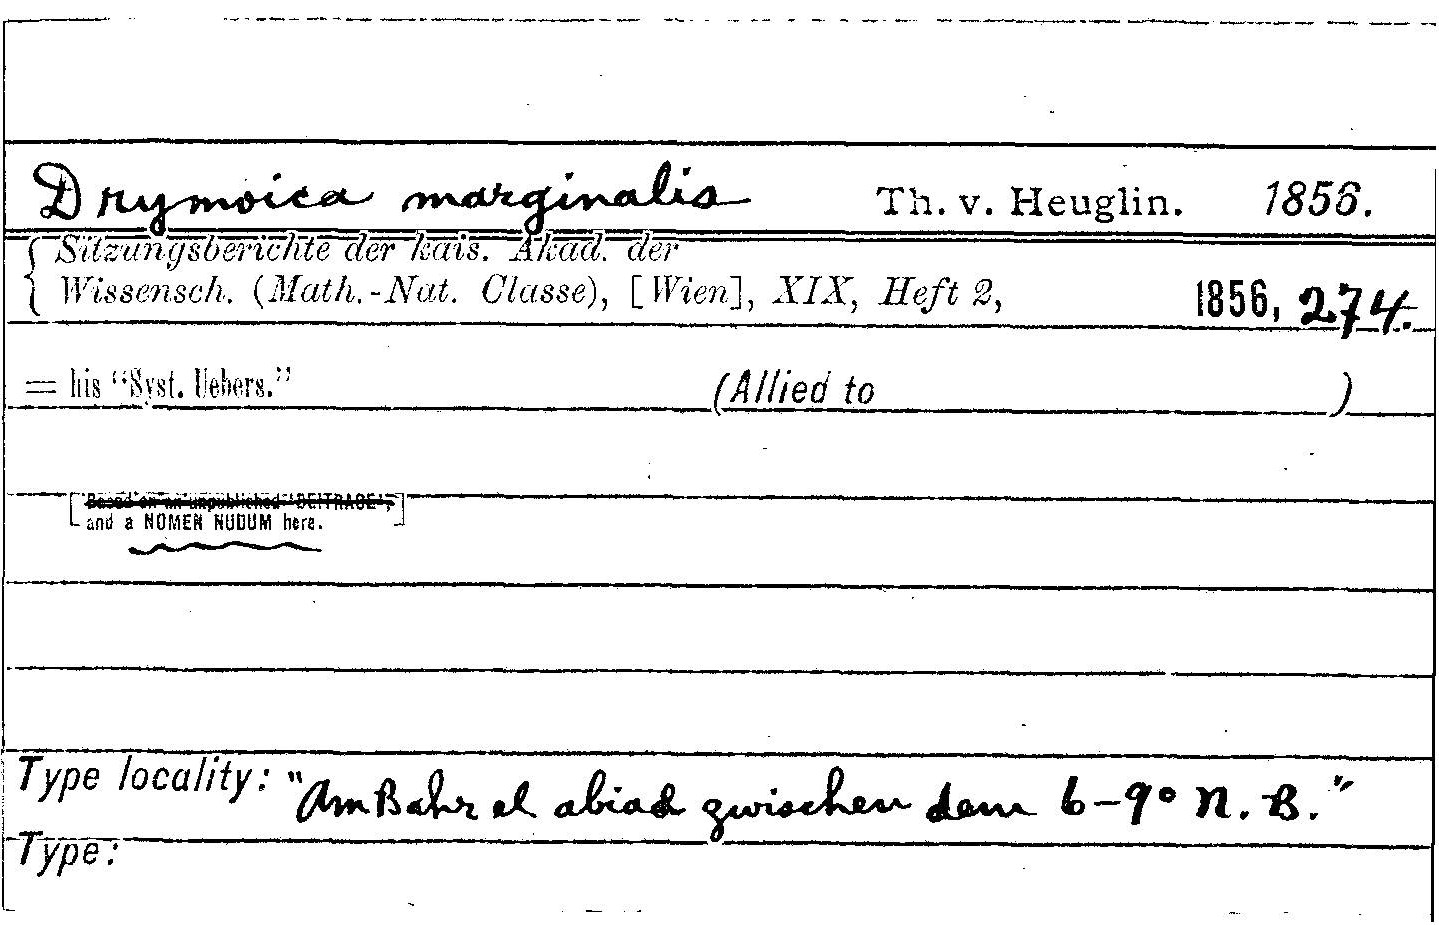 Drymoica marginalis Th. v. Heuglin. 1856.
Sitzungsberichte der kais. Akad. der
Wissensch. (Math.-Nat. Classe), [Wien], XIX, Heft 2, 1856, 274.
= his "Syst. Uebers." (Allied to )
[Based on an unpublished 'BEITRAGE',
and a NOMEN NUDUM here.]
Type locality: "Am Bahr el abiad zwischen dem 6-9° N. B."
Type: